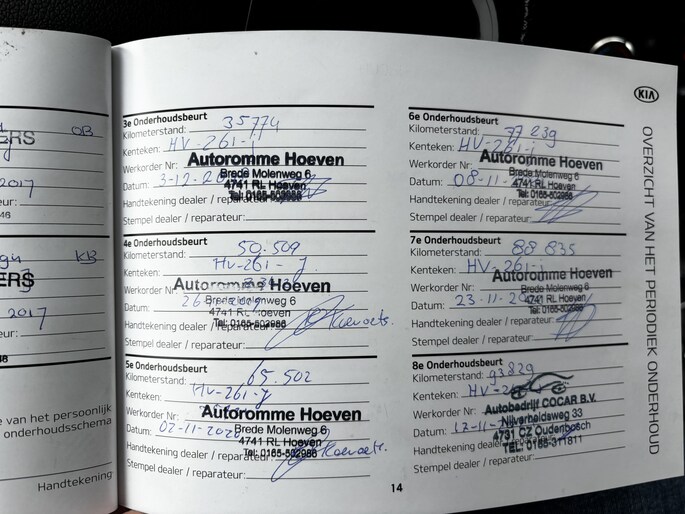 ERS
OB
2017
KB
ERS
2017
e van het persoonlijk
onderhoudsschema
Handtekening
3e Onderhoudsbeurt
Kilometerstand: 35774
Kenteken: HV-261-j
Werkorder Nr:
Autoromme Hoeven
Brede Molenweg 6
Datum: 3-12-
4741 RL Hoeven
Tel: 0165-502986
Handtekening dealer / reparateur:
Stempel dealer / reparateur:
4e Onderhoudsbeurt
Kilometerstand: 50.509
Kenteken: HV-261-J
Werkorder Nr:
Autoromme Hoeven
Brede Molenweg 6
Datum:
4741 RL Hoeven
Tel: 0165-502986
Handtekening dealer / reparateur:
Stempel dealer / reparateur:
5e Onderhoudsbeurt
Kilometerstand: 65.502
Kenteken: HV-261-J
Werkorder Nr:
Autoromme Hoeven
Brede Molenweg 6
Datum: 02-11-2020
4741 RL Hoeven
Tel: 0165-502986
Handtekening dealer / reparateur:
Stempel dealer / reparateur:
6e Onderhoudsbeurt
Kilometerstand: 77239
Kenteken: HV-261-j
Werkorder Nr:
Autoromme Hoeven
Brede Molenweg 6
Datum: 08-11-
4741 RL Hoeven
Tel: 0165-502986
Handtekening dealer / reparateur:
Stempel dealer / reparateur:
7e Onderhoudsbeurt
Kilometerstand: 88835
Kenteken: HV-261-j
Werkorder Nr:
Autoromme Hoeven
Brede Molenweg 6
Datum: 23-11-
4741 RL Hoeven
Tel: 0165-502986
Handtekening dealer / reparateur:
Stempel dealer / reparateur:
8e Onderhoudsbeurt
Kilometerstand: 93829
Kenteken: HV-261-
Werkorder Nr:
Autobedrijf COCAR B.V.
Nijverheidsweg 33
Datum: 12-11-
4731 CZ Oudenbosch
TEL: 0165-311811
Handtekening dealer
Stempel dealer / reparateur:
14
KIA
OVERZICHT VAN HET PERIODIEK ONDERHOUD